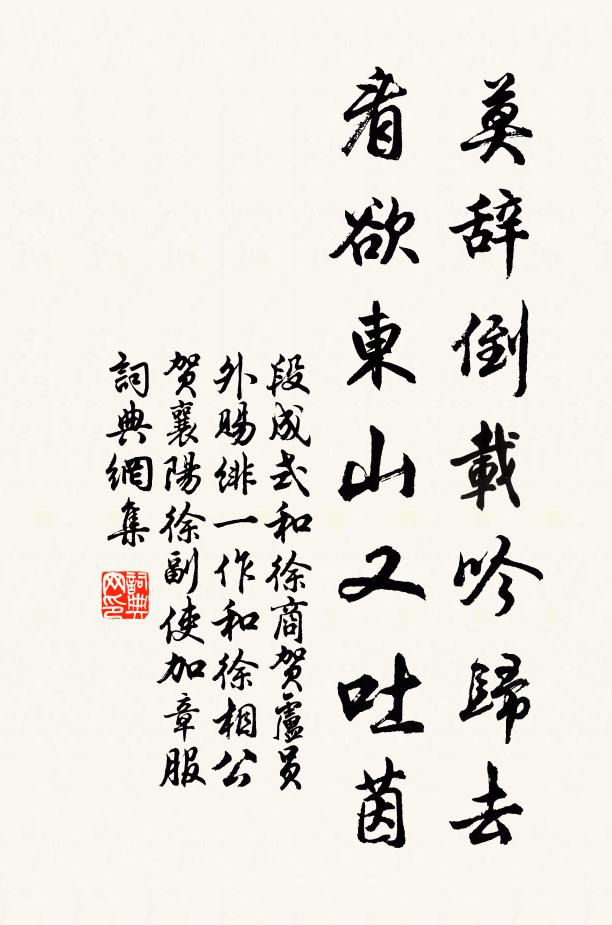 莫辭倒載吟歸去
看欲東山又吐茵
段成式和徐商賀盧員
外賜緋一作和徐相公
賀襄陽徐副使加章服
詞典網集
詞典網印